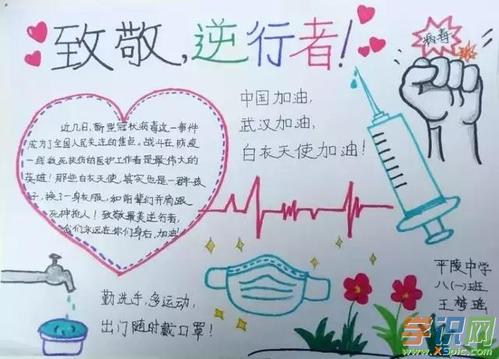 致敬,逆行者!
中国加油,
武汉加油,
白衣天使加油!
病毒
近几日,新型冠状病毒这一事件
成为了全国人民关注的焦点,战斗在防疫
一线救死扶伤的医护工作者是最伟大的
英雄!那些白衣天使,其实也是一群孩
子,换了一身衣服,如前辈们开启跟
死神抢人!致敬最美逆行者,
我们永远在你们身后,加油!
勤洗手,多运动,
出门随时戴口罩!
平陵中学
八(一)班
学识网
www.XSpic.com